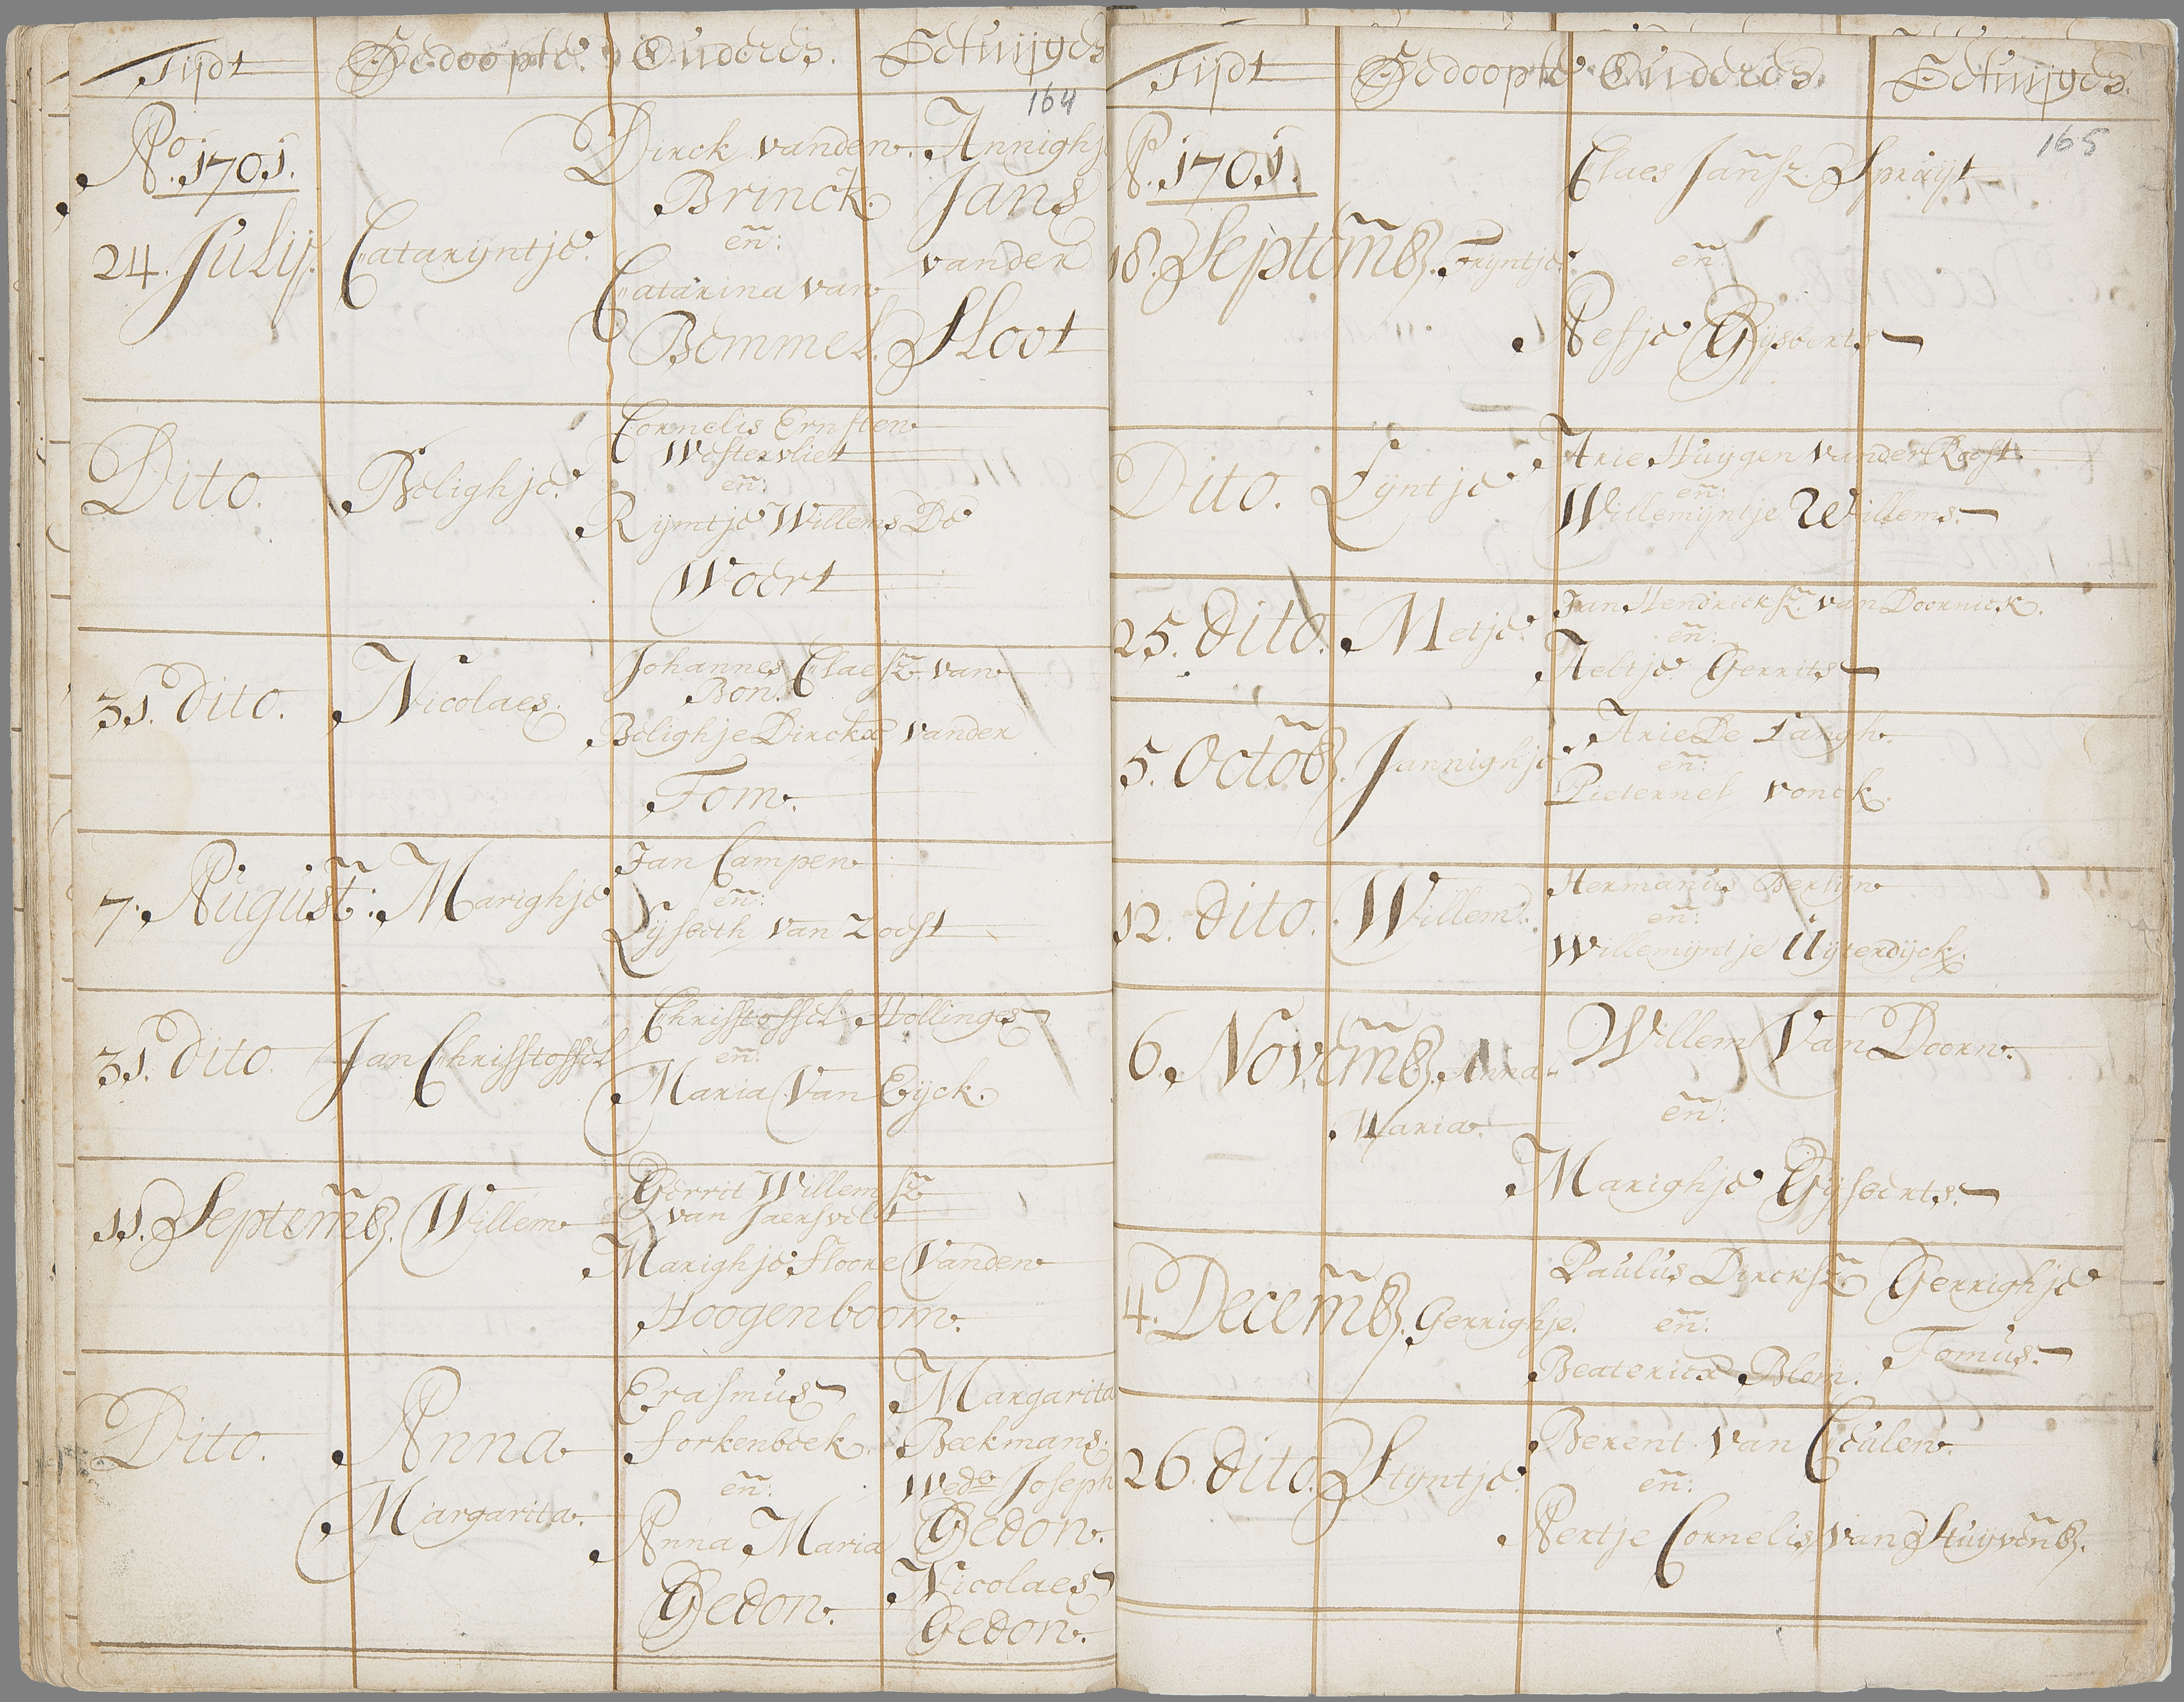 Tijdt Gedoopte Ouderes. Getuijges
164
Ao. 1701.
24. Julij. Catarijntje.
Dirck vanden
Brinck.
en:
Catarina van
Bommel.
Annighj
Jans
vander
Sloot
Dito. Belighje.
Cornelis Ernsten
Westervliet
en:
Rijmtje Willems De
Woert
31. dito. Nicolaes.
Johannes Claesz. van
Bon.
Belighje Dirckx vander
Tom.
7. August: Marighje
Jan Campen
en:
Lijsbeth van Zoest
31. dito. Jan Christoffel
Christoffel Hollinges
en:
Maria Van Eijck.
11. Septemb. Willem
Gerrit Willemsz
van Jaersvelt
Marighje Floore Vanden
Hoogenboom.
Dito. Anna
Margarita.
Erasmus
Forkenbeek.
en:
Anna Maria
Gedon.
Margarita
Beekmans.
Wede Joseph
Gedon.
Nicolaes
Gedon.
Tijdt Gedoopte Ouderes. Getuijges.
165
Ao. 1701.
18. Septemb. Trijntje.
Claes Jansz. Spruijt
en
Aefje Gijsberts
Dito. Lijntje
Arie Huijgen vander Roest.
en:
Willemijntje Willems.
25. dito. Metje.
Jan Hendricksz. van Doornick.
en:
Neltje Gerrits
5. Octob. Jannighje
Arie De Langh.
en:
Pieternel vonck.
12. dito. Willem.
Hermanus Berlijn
en:
Willemijntje Uijterdijck.
6. Novemb. Anna
Maria.
Willem Van Doorn.
en:
Marighje Gijsberts.
4. Decemb. Gerrighje.
Paulus Dircksz.
en:
Beaterix Blom.
Gerrighje
Tomus.
26. dito. Stijntje.
Berent van Ceulen.
en:
Aertje Cornelis van Stuijvenb.